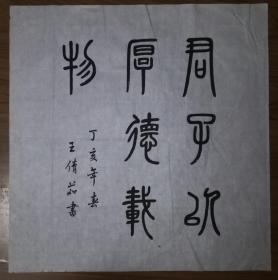 君子以
厚德載
物
丁亥年春
王倩茹書